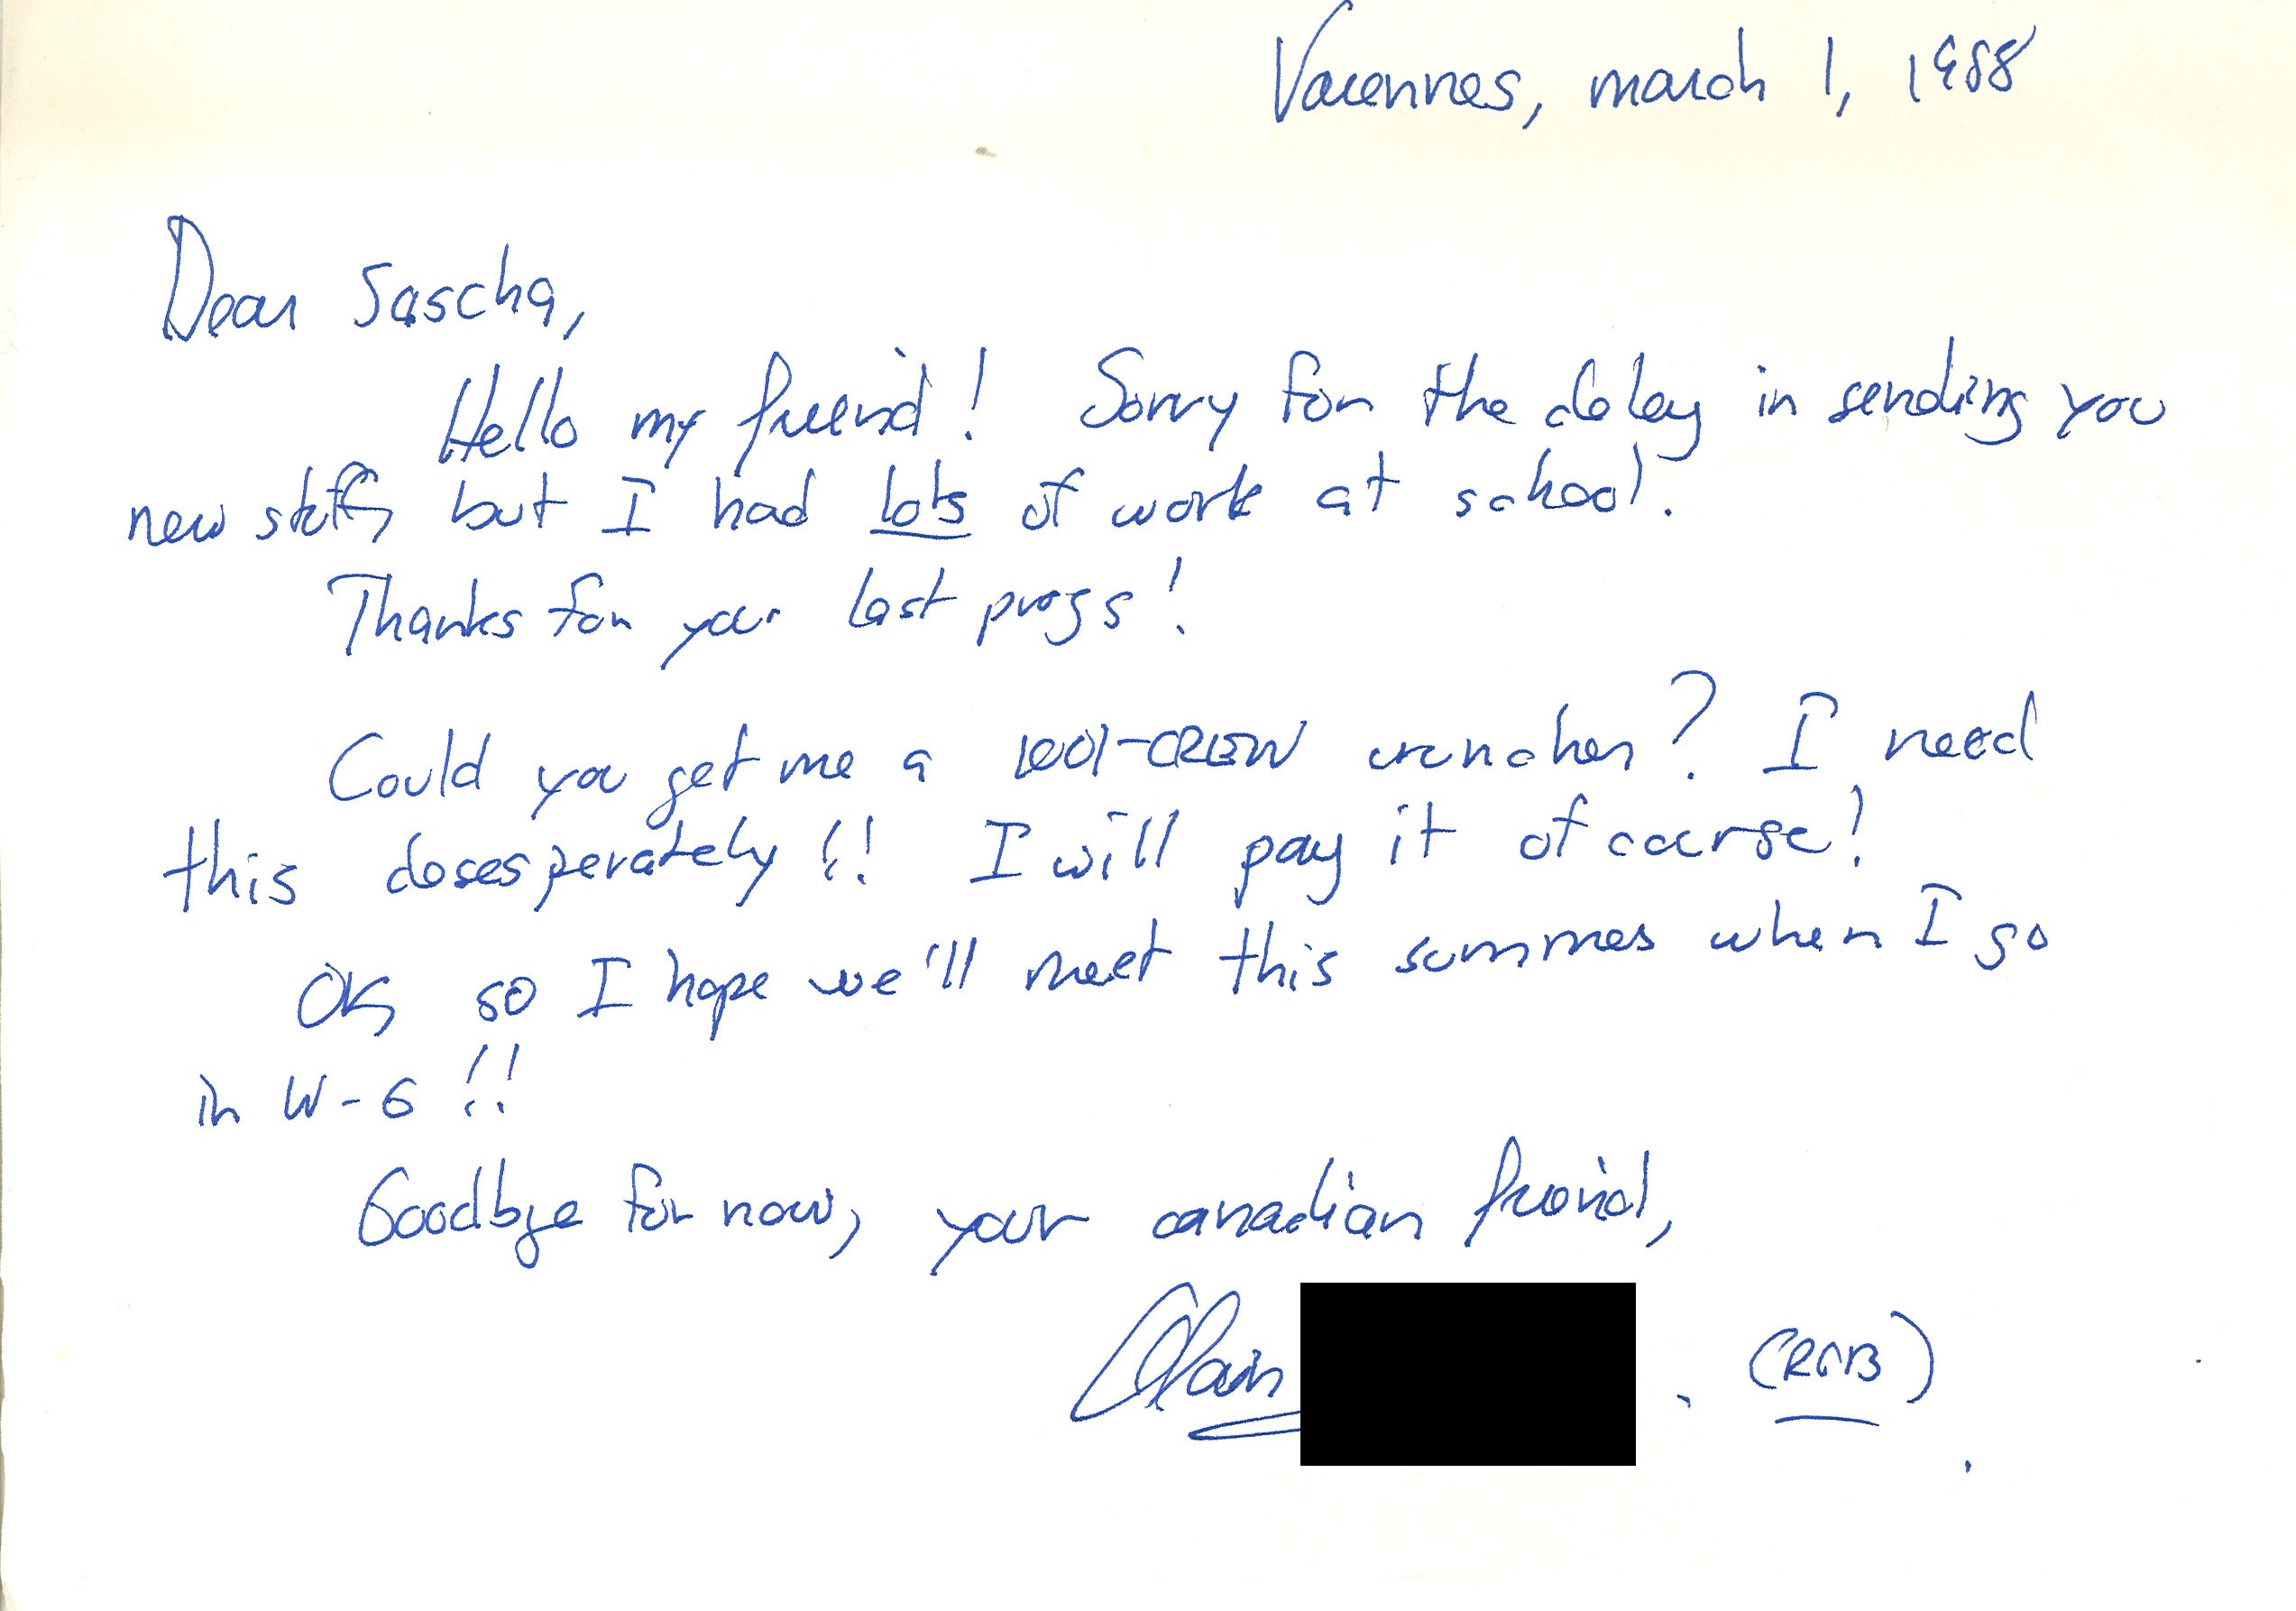 Varennes, march 1, 1988
Dear Sascha,
Hello my friend! Sorry for the delay in sending you
new stuff, but I had lots of work at school.
Thanks for your last progs!
Could you get me a 1001-CREW cruncher? I need
this desesperately!! I will pay it of course!
OK, so I hope we'll meet this summer when I go
in W-G!!
Goodbye for now, your canadian friend,
Alain . (RGB)